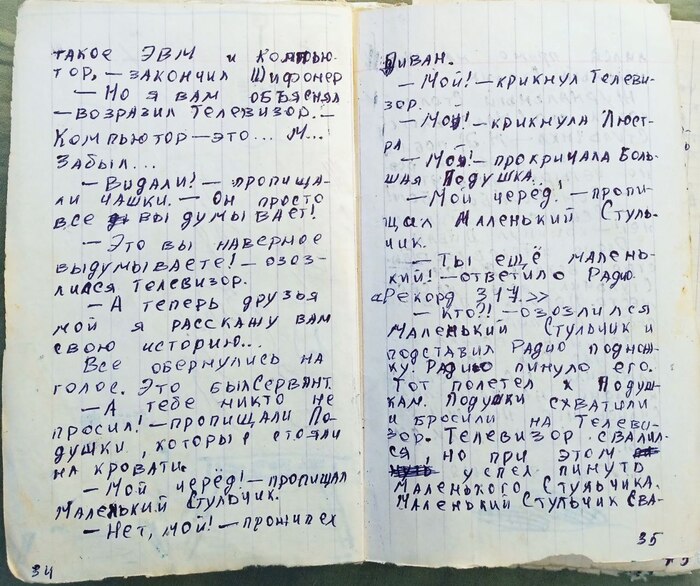 такое ЭВМ и компью-
тор, — закончил Шифонер
— Но я вам объяснял
— возразил Телевизор. —
Компьютор — это... М...
Забыл...
— Видали! — пропища-
ли чашки. — Он просто
все выдумывает!
— Это вы наверное
выдумываете! — озоз-
лился телевизор.
— А теперь друзья
мой я расскажу вам
свою историю...
Все обернулись на
голос. Это был Сервант.
— А тебе никто не
просил! — пропищали По-
душки, которые стояли
на кровати.
— Мой черёд! — пропищал
Маленький Стульчик.
— Нет, мой! — прохрипех
34
Диван.
— Мой! — крикнул Телеви-
зор.
— Моя! — крикнула Люст-
ра
— Моя! — прокричала Боль-
шая Подушка.
— Мой черёд! — пропи-
щал Маленький Стуль-
чик.
— Ты ещё малень-
кий! — ответило Радио
«Рекорд 317.»
— Кто?! — озозлился
Маленький Стульчик и
подставил Радио поднож-
ку. Радио пинуло его.
Тот полетел к Подуш-
кам. Подушки схватили
и бросили на Телеви-
зор. Телевизор свалил-
ся, но при этом
успел пинуть
Маленького Стульчика.
Маленький Стульчик сва-
35